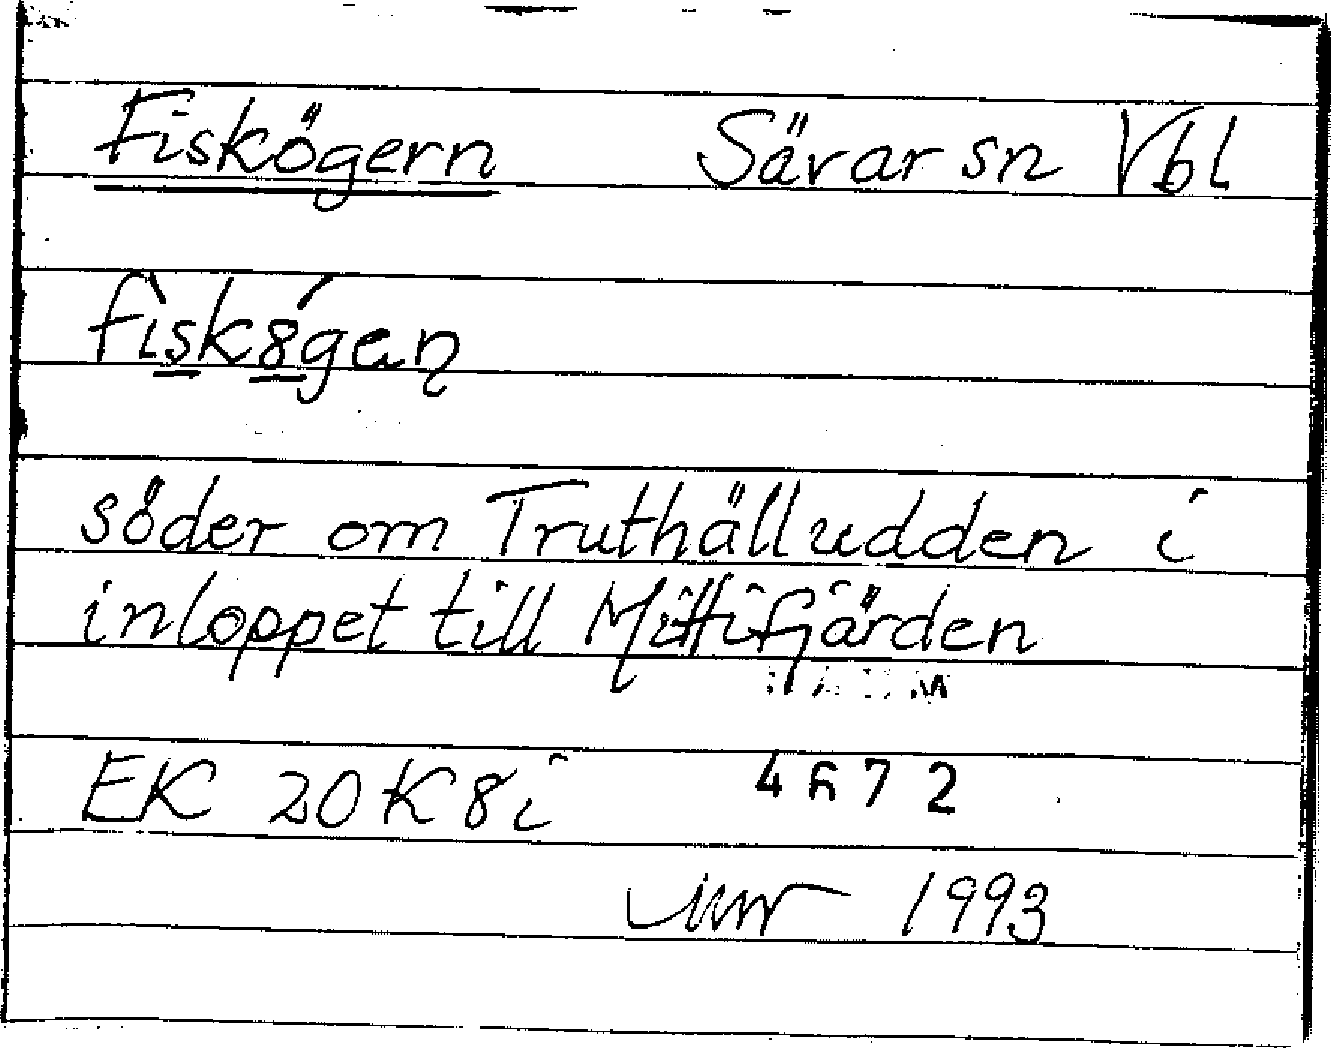 Fiskögern Sävar sn Vbl
fìsk8́gan
söder om Truthälludden i
inloppet till Mittifjärden
EK 20K8i 4672
1993